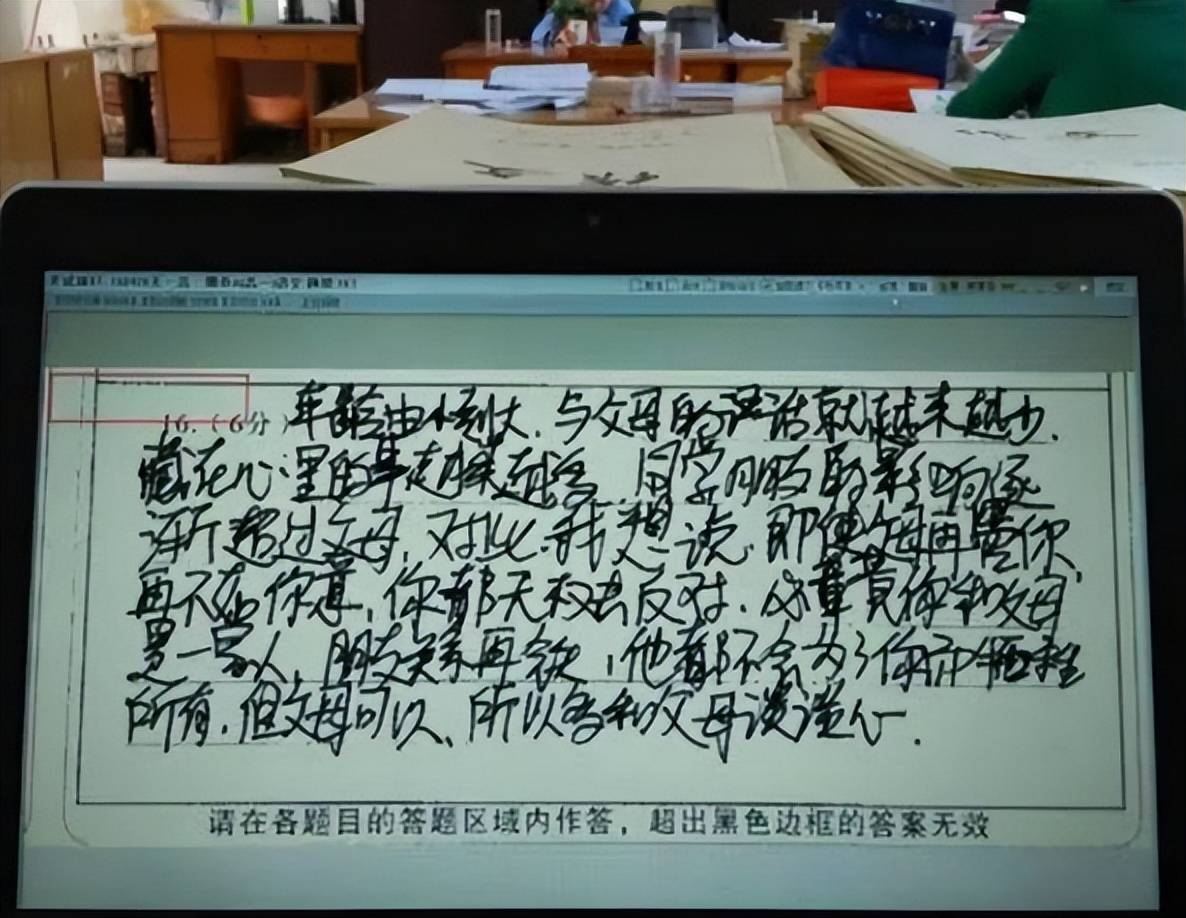 16.（6分）年龄由小到大,与父母的谈话就越来越少,
藏在心里的事越来越多,同学朋友的影响逐
渐超过父母,对此,我想说,即使父母再骂你,
再不如你意,你都无权去反对,毕竟你和父母
是一家人,朋友关系再铁,他都不会为了你而牺牲
所有,但父母可以、所以多和父母谈谈心.
请在各题目的答题区域内作答，超出黑色边框的答案无效